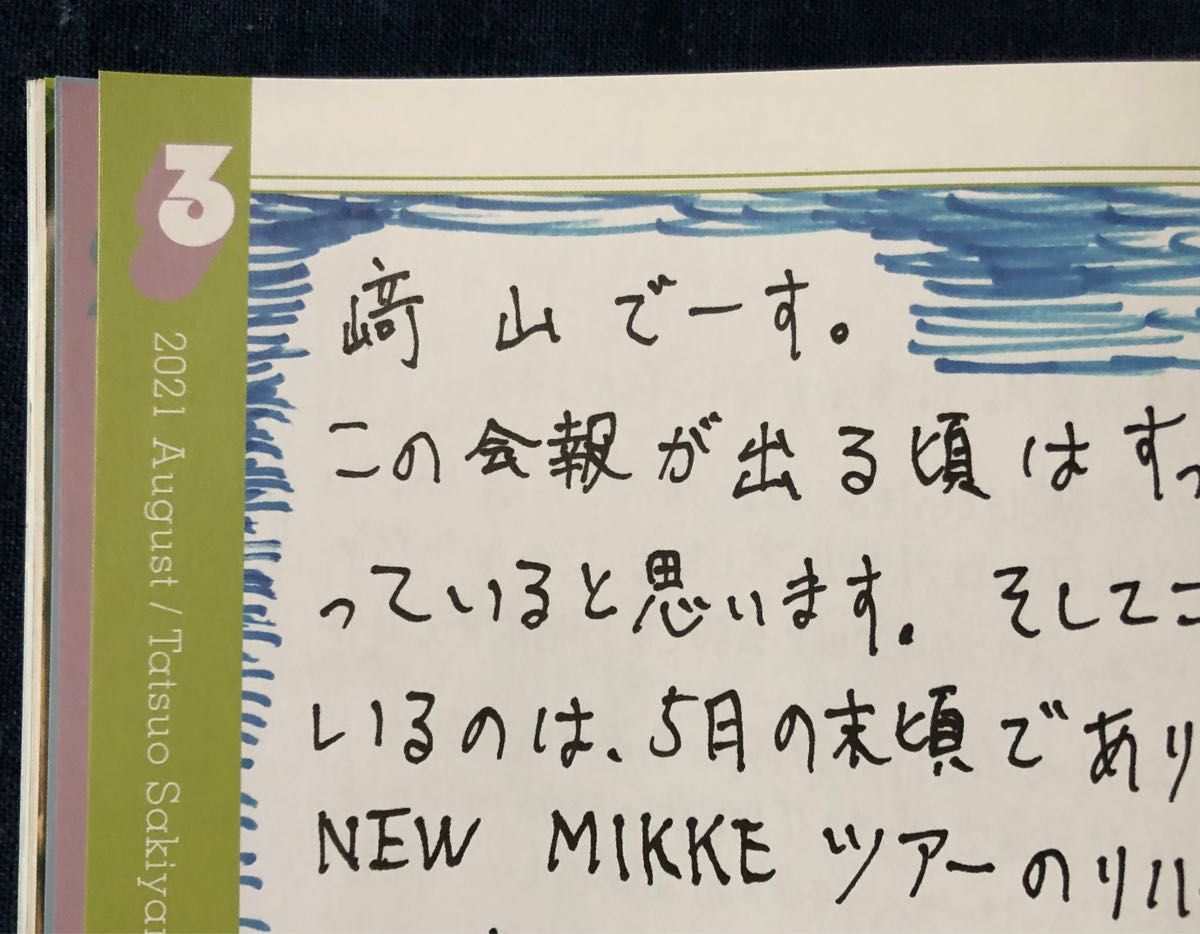 3
2021 August / Tatsuo Sakiya
﨑山でーす。
この会報が出る頃はすっ
っていると思います。そしてこ
いるのは、5月の末頃であり
NEW MIKKE ツアーのリハ